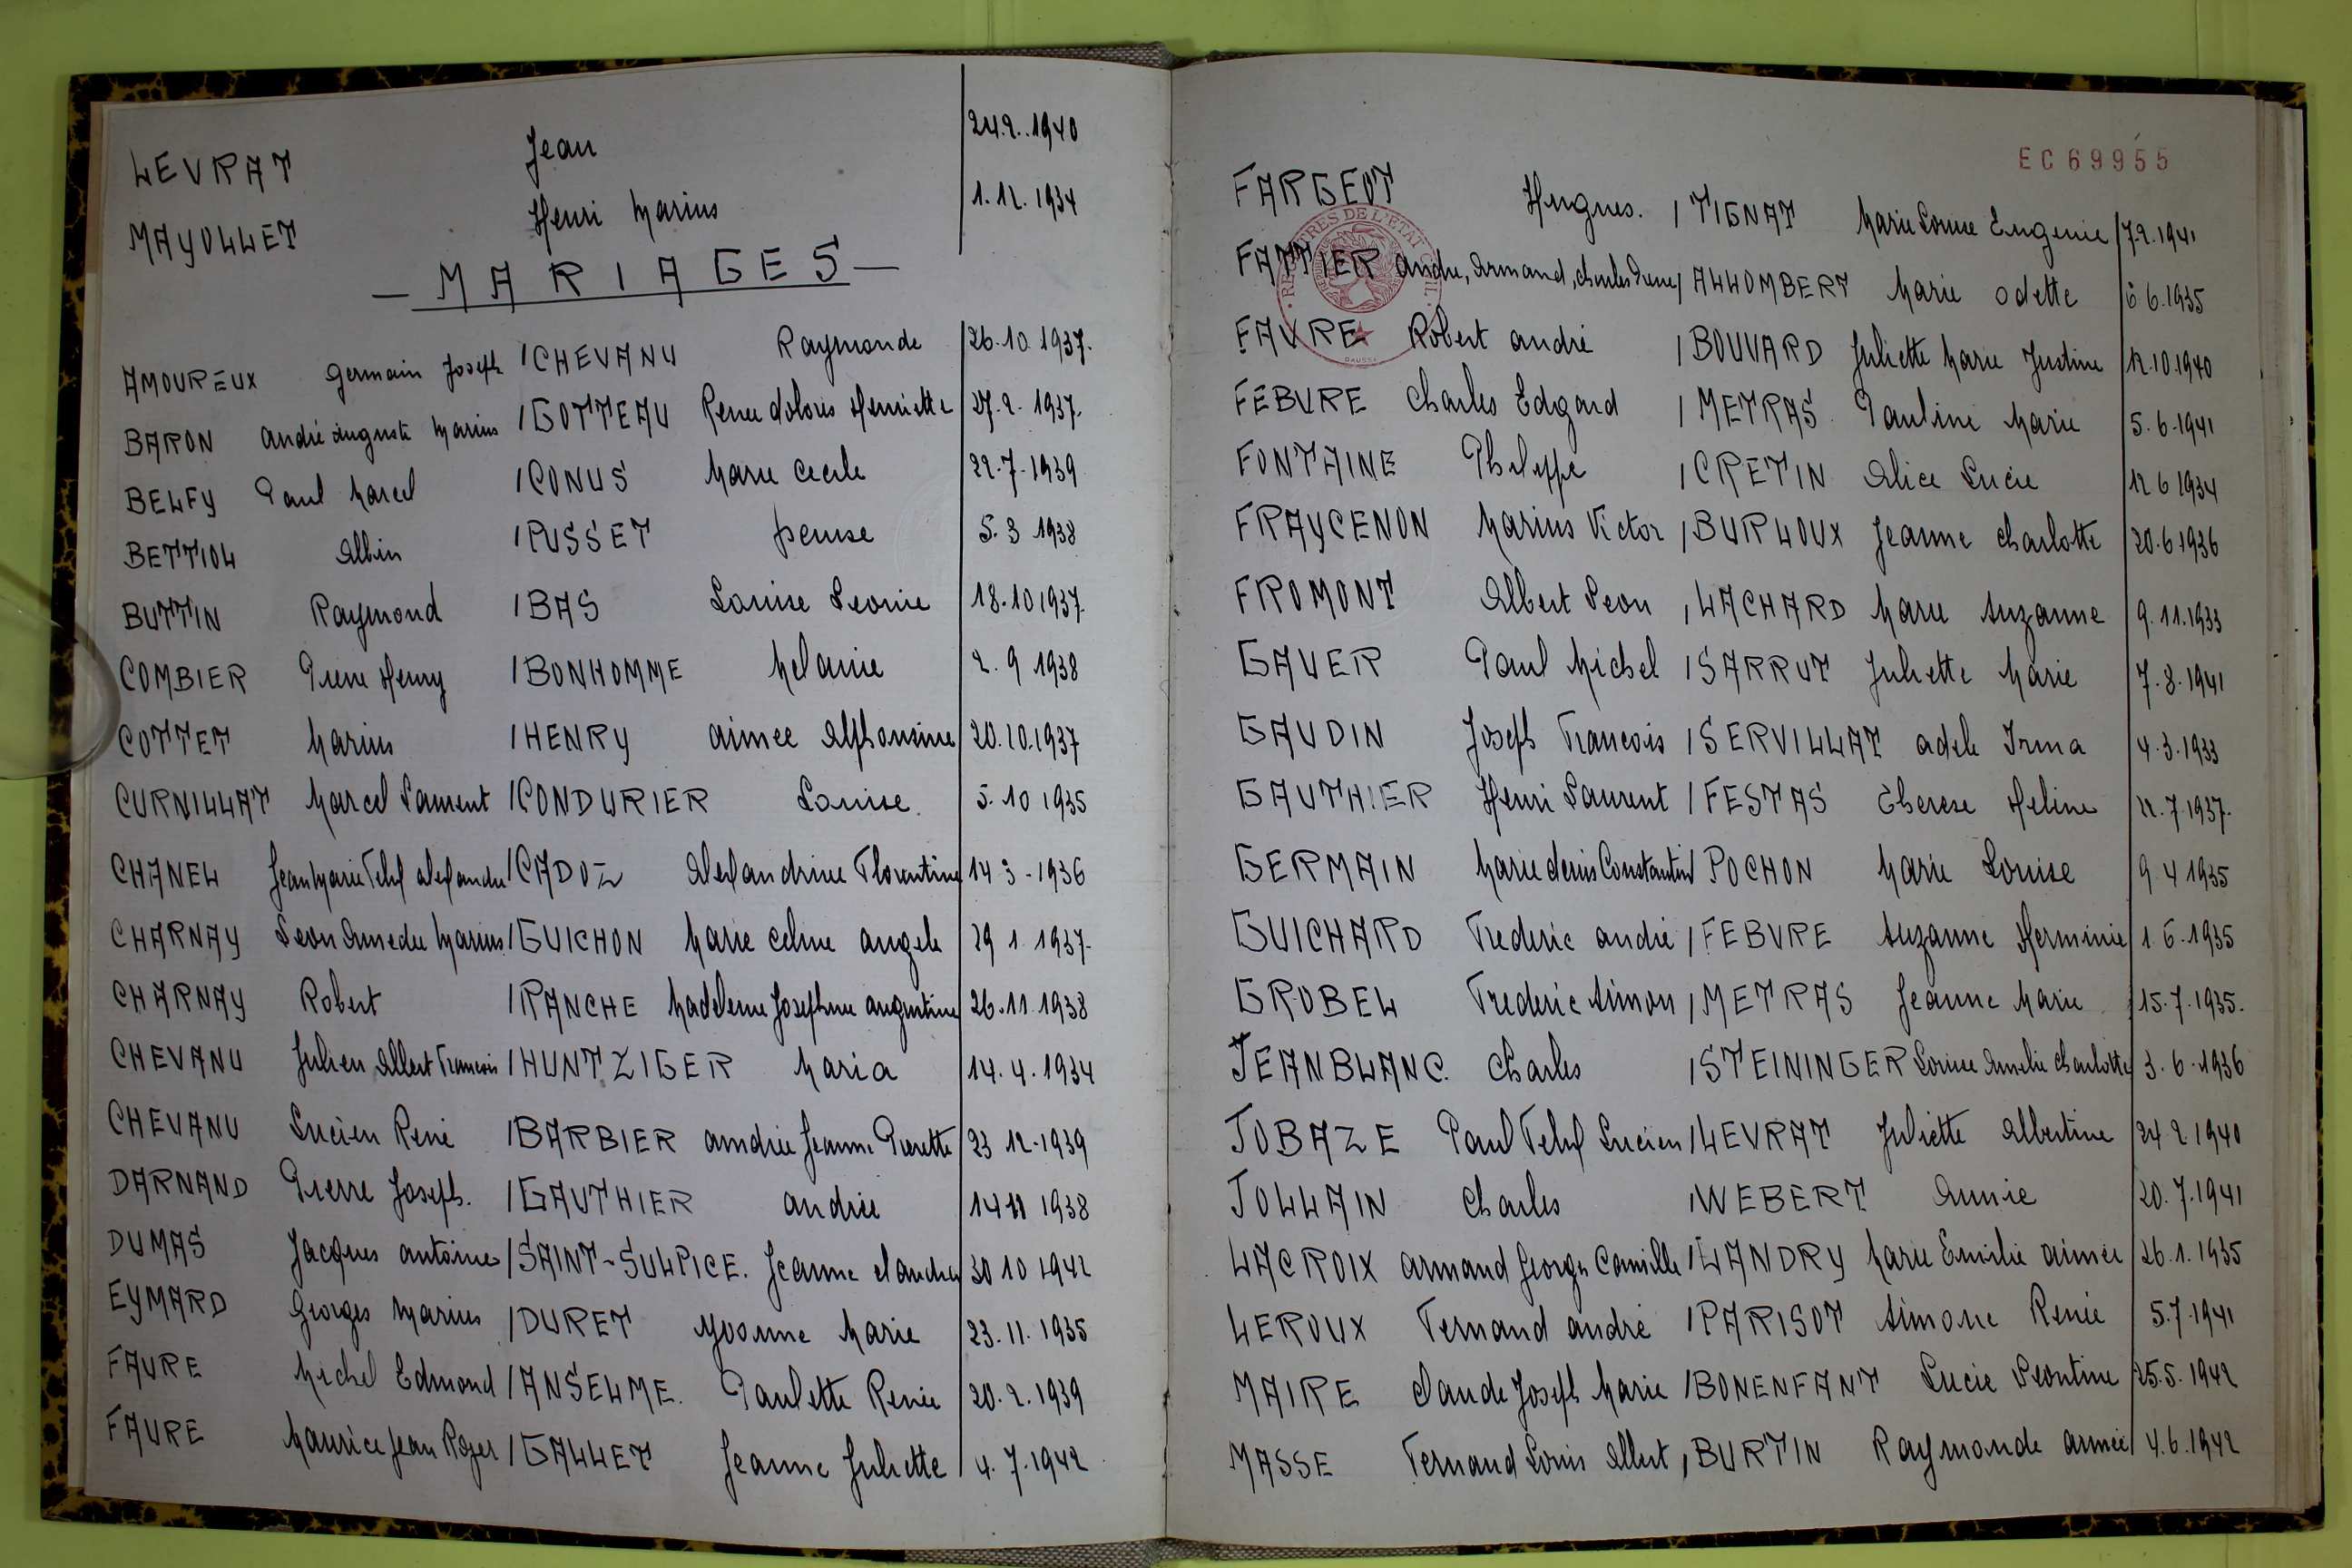 LEVRAT Jean 24.2.1940
MAYOLLET Henri Marius 1.12.1934
— MARIAGES —
AMOUREUX Germain Joseph / CHEVANU Raymonde 26.10.1937.
BARON André Auguste Marius / GOTTEAU Renee dolores Henriette 27.2.1937.
BELFY Paul Marcel / CONUS Marie Cecile 22.7.1939
BETTIOL Albin / RUSSET Denise 5.3 1938
BUTTIN Raymond / BAS Louise Leonie 18.10 1937.
COMBIER Pierre Henry / BONHOMME Melanie 2.9 1938
COTTET Marius / HENRY aimee Alphonsine 20.10.1937
CURNILLAT Marcel Laurent / CONDURIER Louise. 5.10 1935
CHANEL Jean Marie Felix alexandre / CADOZ Alexandrine Florentine 14 3-1936
CHARNAY Leon Amedee Marius / GUICHON Marie Celine angele 29 1.1937.
CHARNAY Robert / RANCHE Madeleine Josephine augustine 26.11.1938
CHEVANU Julien Albert Francois / HUNTZIGER Maria 14.4.1934
CHEVANU Lucien René / BARBIER andrée Jeanne Pierette 23 12-1939
DARNAND Pierre Joseph. / GAUTHIER andrée 14 11 1938
DUMAS Jacques antoine / SAINT-SULPICE. Jeanne claudia 30 10 1942
EYMARD Georges Marius / DURET Yvonne Marie 23.11.1935
FAURE Michel Edmond / ANSELME. Paulette Renée 20.2.1939
FAURE Maurice Jean Roger / GALLET Jeanne Juliette 4.7.1942
EC69955
REGISTRES DE L'ETAT CIVIL
FARGEOT Hugues. / TIGNAT Marie Louise Eugenie 7.2.1941
FATTIER andre, Armand, charles Pierre / ALLOMBERT Marie odette 6 6.1935
FAVRE Robert andré / BOUVARD Juliette Marie Justine 12.10.1940
FEBVRE Charles Edgard / METRAS Pauline Marie 5.6-1941
FONTAINE Philippe / CRETIN Alice Lucie 12 6 1934
FRAYCENON Marius Victor / BURLOUX Jeanne charlotte 20.6.1936
FROMONT Albert Leon / LACHARD Marie Suzanne 9.11.1933
GAUER Paul Michel / SARRUT Juliette Marie 7.8.1941
GAUDIN Joseph Francois / SERVILLAT adele Irma 4.3.1933
GAUTHIER Henri Laurent / FESTAS Therese Heline 22.7 1937.
GERMAIN Marie denis Constantin / POCHON Marie Louise 9 4 1935
GUICHARD Frederic andré / FEBVRE Suzanne Herminie 1.6.1935
GROBEL Frederic Simon / METRAS Jeanne Marie 15.7.1935.
JEANBLANC. Charles / STEININGER Louise Amelie Charlotte 3.6.1936
JOBAZE Paul Felix Lucien / LEVRAT Juliette Albertine 24 2 1940
JOLLAIN Charles / WEBERT Annie 20.7.1941
LACROIX armand Georges Camille / LANDRY Marie Emilie aimée 26.1.1935
LEROUX Fernand andré / PARISOT Simone Renée 5.7.1941
MAIRE Claude Joseph Marie / BONENFANT Lucie Leontine 25.5.1942
MASSE Fernand Louis Albert / BURTIN Raymonde aimée 4.6.1942